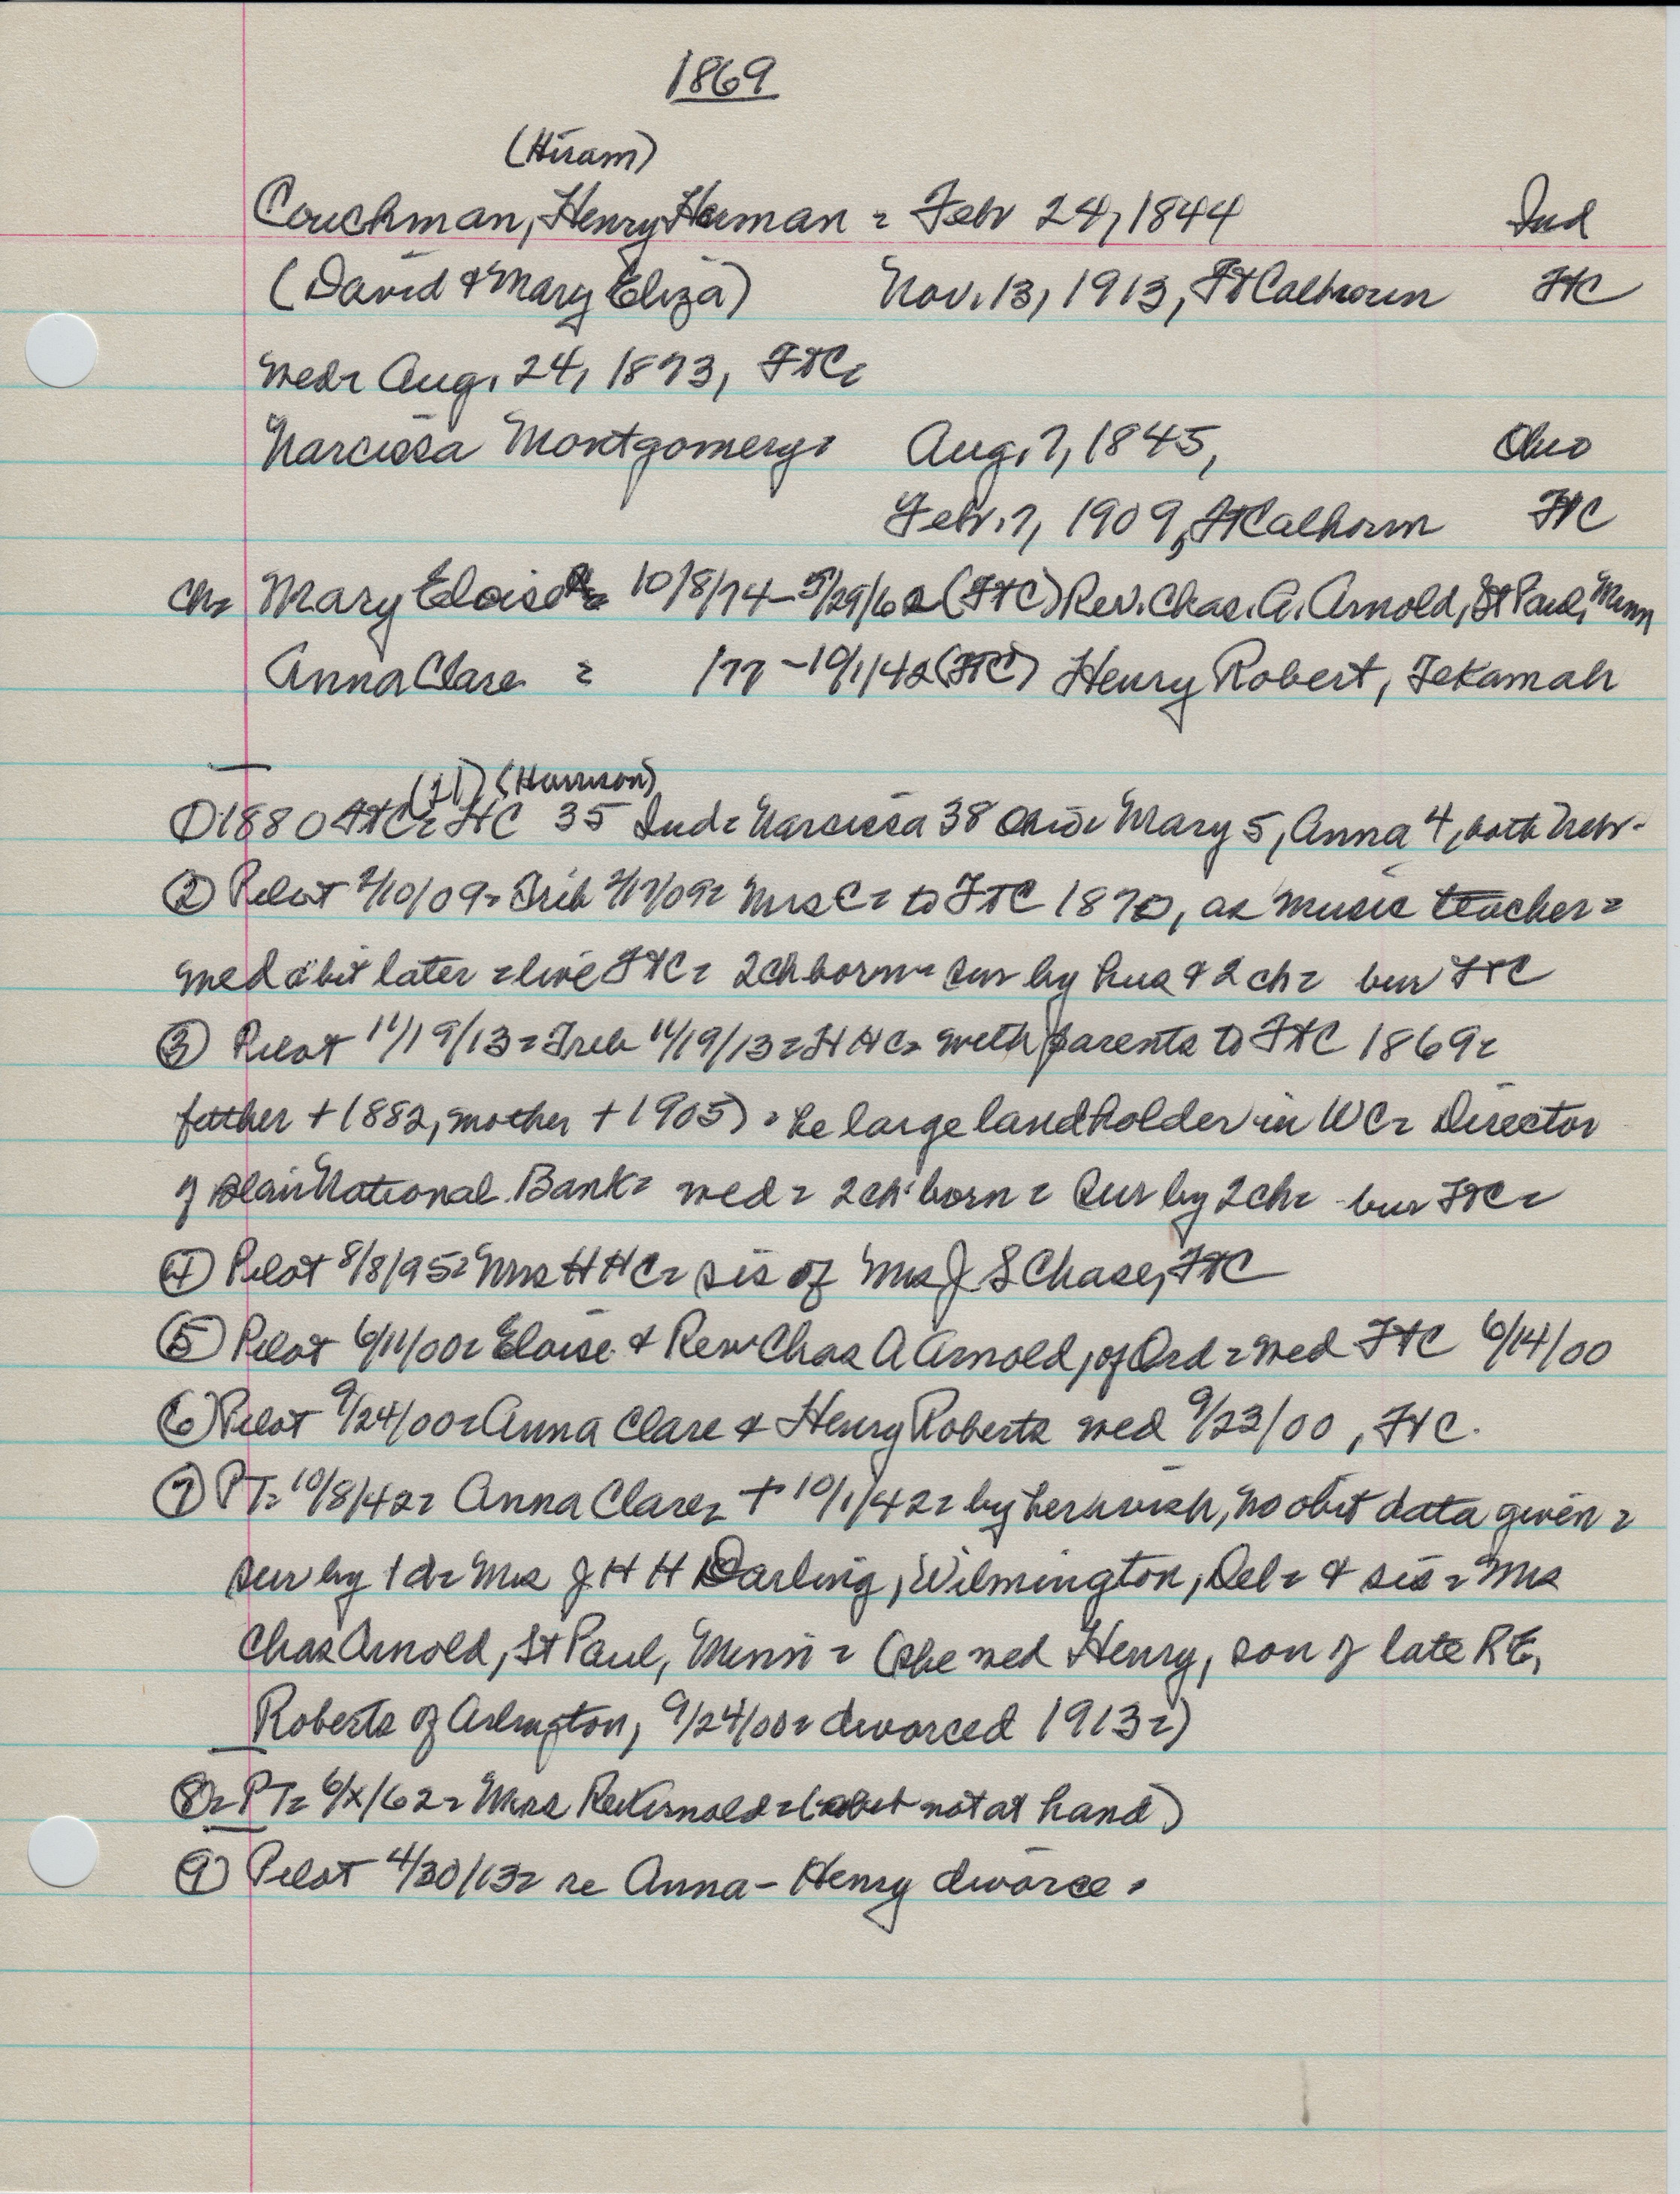 1869
(Hiram)
Couchman, Henry Herman = Febr 24, 1844 Ind
(David & Mary Eliza) Nov. 13, 1913, Ft Calhoun FtC
wed = Aug. 24, 1873, FtC =
Narcissa Montgomery = Aug. 7, 1845, Ohio
Febr. 7, 1909, Ft Calhoun FtC
ch = Mary Eloise = 10/8/74 - 5/29/62 (FtC) Rev. Chas. A. Arnold, St Paul, Minn
Anna Clare = /77 - 10/1/42 (FtC) Henry Robert, Tekamah
(H) (Harrison)
① 1880 FtC = HC 35 Ind = Narcissa 38 Ohio = Mary 5, Anna 4, both Nebr.
② Pilot 2/10/09 = Trib 2/17/09 = Mrs C = to FtC 1870, as music teacher =
wed a bit later = live FtC = 2 ch born = sur by hus & 2 ch = bur FtC
③ Pilot 11/19/13 = Trib 11/19/13 = HHC = with parents to FtC 1869 =
father + 1882, mother + 1905) = he large landholder in WC = Director
of Blair National Bank = wed = 2 ch born = sur by 2 ch = bur FtC =
④ Pilot 8/8/95 = Mrs HHC = sis of Mrs J S Chase, FtC
⑤ Pilot 6/11/00 = Eloise & Rev Chas A Arnold, of Ord = wed FtC 6/14/00
⑥ Pilot 9/24/00 = Anna Clare & Henry Roberts wed 9/23/00, FtC.
⑦ PT = 10/8/42 = Anna Clare = + 10/1/42 = by her wish, no obit data given =
sur by 1 d = Mrs J H H Darling, Wilmington, Del = & sis = Mrs
Chas Arnold, St Paul, Minn = (she wed Henry, son of late RE,
Roberts of Arlington, 9/24/00 = divorced 1913 =)
⑧ = PT = 6/x/62 = Mrs Rev Arnold = (obit not at hand)
⑨ Pilot 4/30/13 = re Anna - Henry divorce.